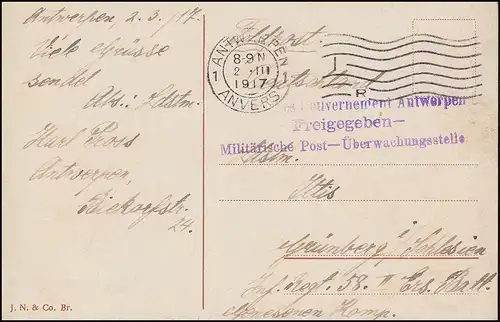 Antwerpen, 2.3./17.
Viele Grüsse
sendet
Abs.: Ldstm.
Karl Pross
Antwerpen,
24.
J. N. & Co. Br.
Feldpost.
ANTWERPEN
8-9N
1 2 -III 1
1917
ANVERS
R
Gouvernement Antwerpen
-Freigegeben-
Militärische Post-Überwachungsstelle
Ldstm.
Ittis
Grünberg i Schlesien
Inf. Regt. 58. II Ers. Batl.
Genesenen Komp.